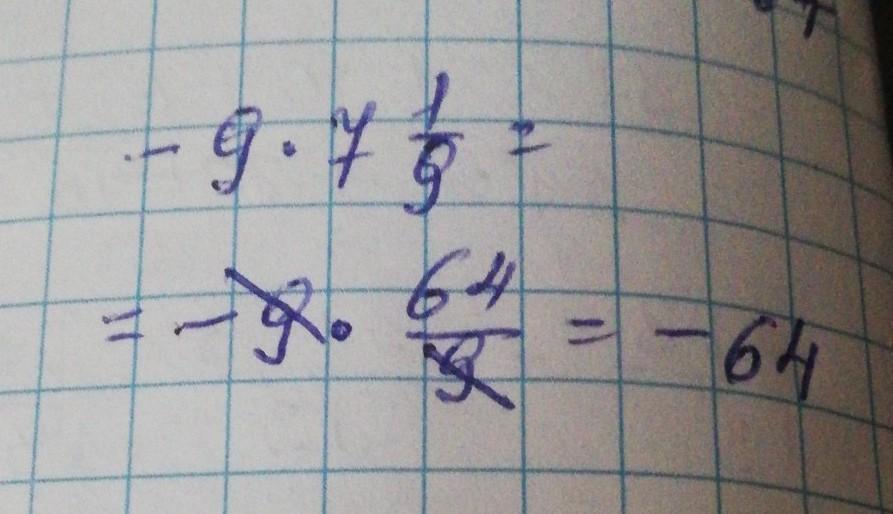 - 9 · 7 1/9 =
= - 9 · 64/9 = - 64